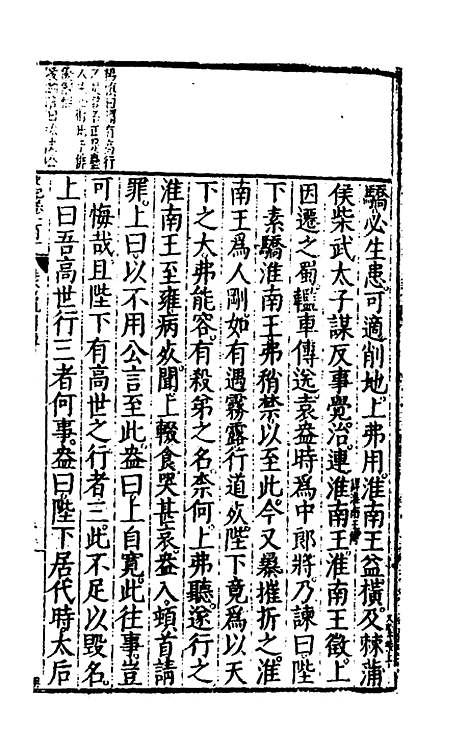 驕必生患可適削地上弗用淮南王益橫及棘蒲
侯柴武太子謀反事覺治連淮南王淮南王徵上
因遷之蜀轞車傳送袁盎時爲中郎將乃諫曰陛
下素驕淮南王弗稍禁以至此今又暴摧折之淮
南王爲人剛如有遇霧露行道死陛下竟爲以天
下之大弗能容有殺弟之名柰何上弗聽遂行之
淮南王至雍病死聞上輟食哭甚哀盎入頓首請
罪上曰以不用公言至此盎曰上自寬此往事豈
可悔哉且陛下有高世之行者三此不足以毀名
上曰吾高世行三者何事盎曰陛下居代時太后